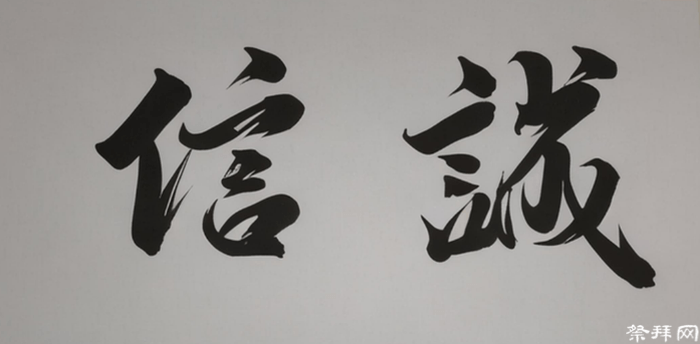 誠信
祭拜网